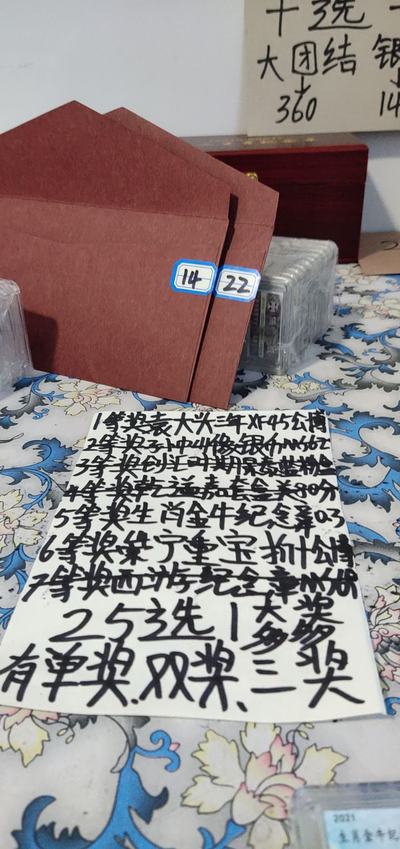 十选一
大团结 银
360 14
14 22
1等奖袁大头三年XF45公博
2等奖孙中山像银币MS62
3等奖创汇时期景泰蓝粉盒
4等奖乾道嘉套盒美80分
5等奖生肖金牛纪念章03
6等奖崇宁重宝折十公博
7等奖西游纪念章MS69
25选1大奖多多
有单奖.双奖、三奖
2021
生肖金牛纪